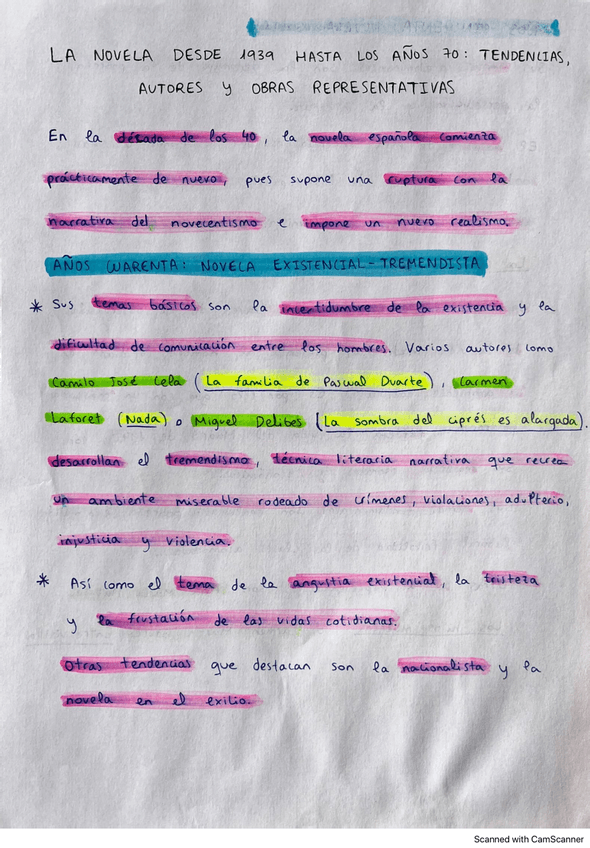 LA NOVELA DESDE 1939 HASTA LOS AÑOS 70: TENDENCIAS,
AUTORES y OBRAS REPRESENTATIVAS
En la década de los 40, la novela española comienza
prácticamente de nuevo, pues supone una ruptura con la
narrativa del novecentismo e impone un nuevo realismo.
AÑOS CUARENTA: NOVELA EXISTENCIAL-TREMENDISTA
* Sus temas básicos son la incertidumbre de la existencia y la
dificultad de comunicación entre los hombres. Varios autores como
Camilo José Cela (La familia de Pascual Duarte), Carmen
Laforet (Nada) o Miguel Delibes (La sombra del ciprés es alargada).
desarrollan el tremendismo, técnica literaria narrativa que recrea
un ambiente miserable rodeado de crímenes, violaciones, adulterio,
injusticia y violencia.
* Así como el tema de la angustia existencial, la tristeza
y la frustación de las vidas cotidianas.
Otras tendencias que destacan son la nacionalista y la
novela en el exilio.
Scanned with CamScanner